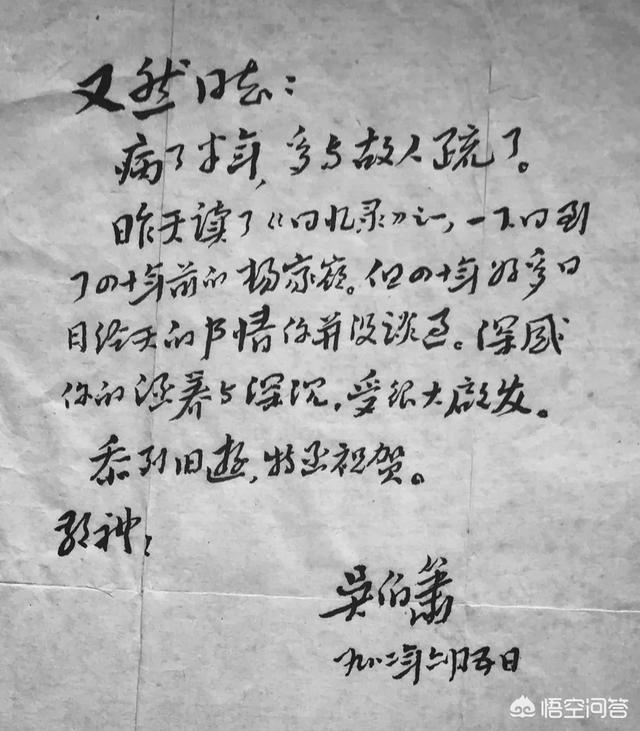 又然同志：
病了半年，多与故人疏了。
昨天读了《回忆录》之一，一下回到
了四十年前的杨家岭。但四十年好多日
月经天的事情你并没谈过。深感
你的涵养与深沉，受很大启发。
忝列旧游，特函祝贺。
吴伯箫
一九八二年六月五日
悟空问答